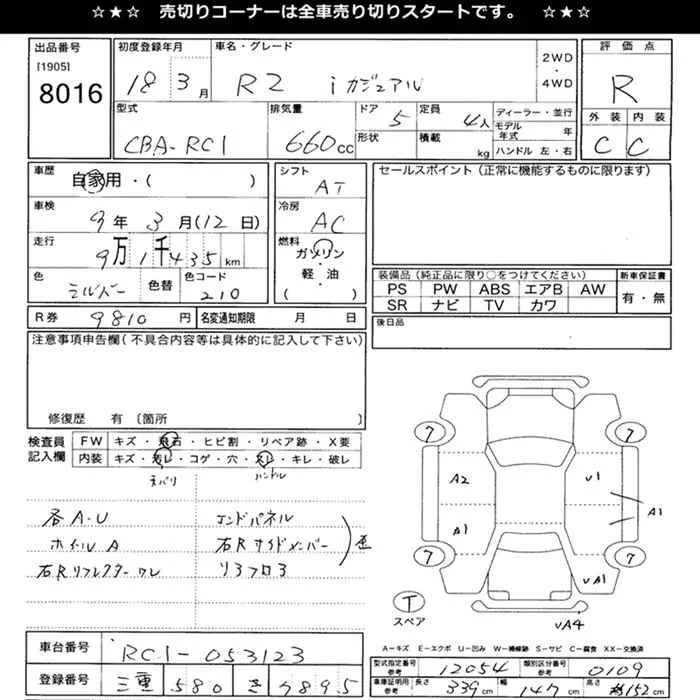 ☆★☆ 売切りコーナーは全車売り切りスタートです。 ☆★☆
出品番号
[1905]
8016
初度登録年月
18 3月
車名・グレード
R2 i カジュアル
2WD
・
4WD
評価点
R
型式
CBA-RC1
排気量
660cc
ドア
5
形状
定員
4人
積載
kg
ディーラー・並行
モデル年式 年
ハンドル 左・右
外装 内装
C C
車歴
自家用・( )
シフト
AT
セールスポイント(正常に機能するものに限ります)
車検
9年 3月(12日)
冷房
AC
走行
9万1千435km
燃料
ガソリン
・
軽油
( )
色
シルバー
色替
色コード
210
装備品(純正品に限り○をつけてください)
PS PW ABS エアB AW
SR ナビ TV カワ
新車保証書
有・無
R券 9810円
名変通知期限 月 日
後日品
注意事項申告欄(不具合内容等は具体的に記入して下さい)
修復歴 有〔箇所 〕
検査員記入欄
FW キズ・飛石・ヒビ割・リペア跡・X要
内装 キズ・汚レ・コゲ・穴・スレ・キレ・破レ
天バリ ハンドル
各A・U
ホイルA
右Rリフレクターワレ
エンドパネル
右Rサイドメンバー
リヤフロア
7 7
A2 U1
A1 A1
7 7
UA1
T
スペア
UA4
A-キズ E-エクボ U-凹み W-補修跡 S-サビ C-腐食 XX-交換済
車台番号 RC1-053123
登録番号 三重 580 き 7895
型式指定番号 参考 12054
類別区分番号 参考 0109
車庫証明用 参考 長さ 339cm 幅 147cm 高さ 152cm